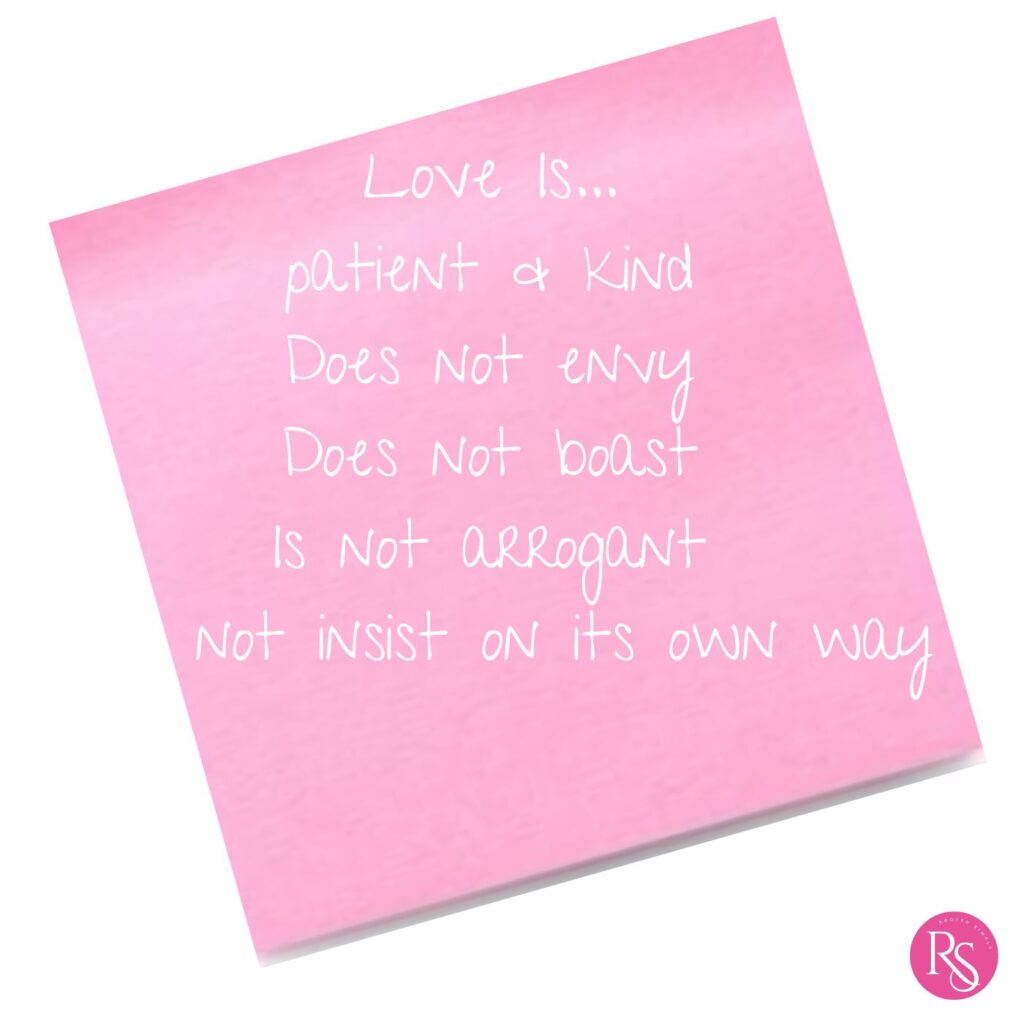 Love Is...
patient & kind
Does not envy
Does not boast
Is not arrogant
not insist on its own way
ROOTED SIMPLY
RS